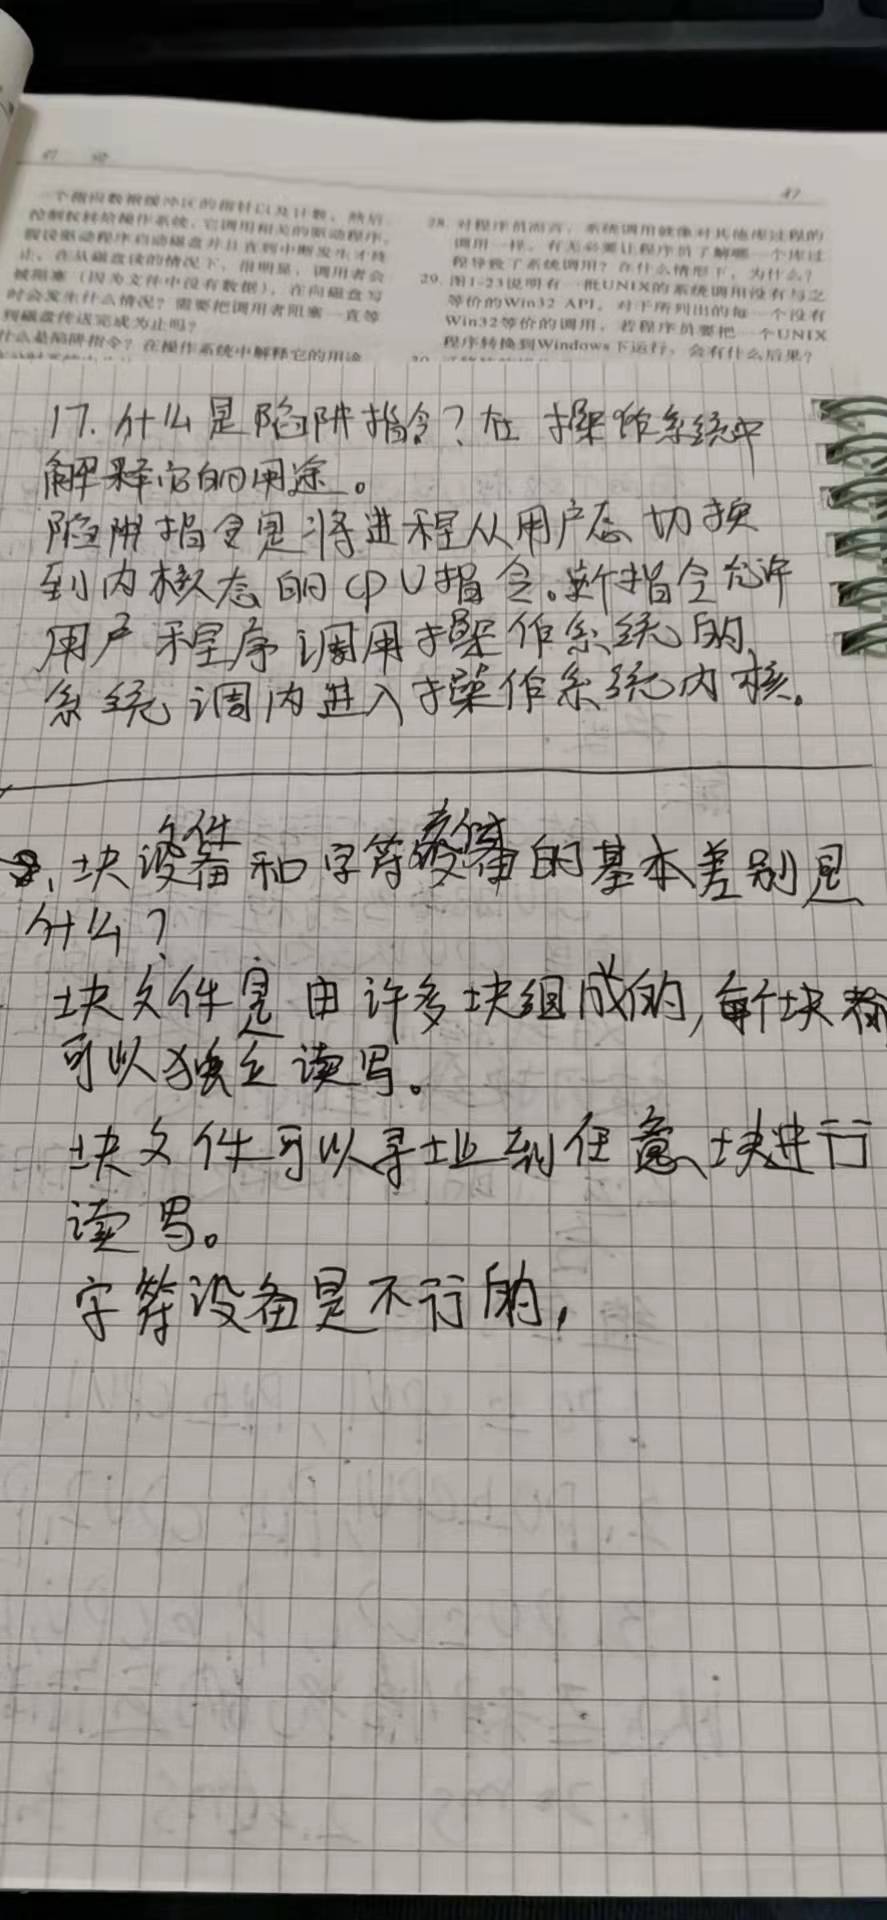 47
一个指向数据缓冲区的指针以及计数，然后
控制权转给操作系统，它调用相关的驱动程序。
假设驱动程序启动磁盘并且直到中断发生才终
止。在从磁盘读的情况下，很明显，调用者会
被阻塞（因为文件中没有数据）。在向磁盘写
时会发生什么情况？需要把调用者阻塞一直等
到磁盘传送完成为止吗？
什么是陷阱指令？在操作系统中解释它的用途
28. 对程序员而言，系统调用就像对其他库过程的
调用一样。有无必要让程序员了解哪一个库过
程导致了系统调用？在什么情形下，为什么？
29. 图1-23说明有一批UNIX的系统调用没有与之
等价的Win32 API。对于所列出的每一个没有
Win32等价的调用，若程序员要把一个UNIX
程序转换到Windows下运行，会有什么后果？
17. 什么是陷阱指令？在操作系统中
解释它的用途。
陷阱指令是将进程从用户态切换
到内核态的CPU指令。新指令允许
用户程序调用操作系统的
系统调内进入操作系统内核。
文件
8. 块设备和字符设备的基本差别是
什么？
块文件是由许多块组成的，每个块都
可以独立读写。
块文件可以寻址到任意块进行
读写。
字符设备是不行的，